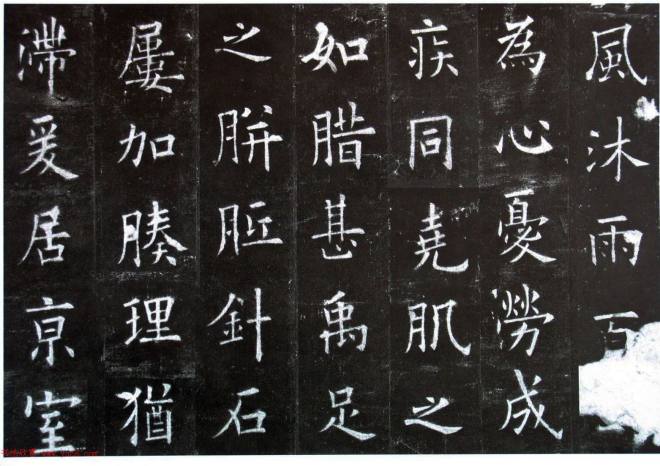 風沐雨百
為心憂勞成
疾同堯肌之
如腊甚禹足
之胼胝針石
屢加腠理猶
滯爰居亰室